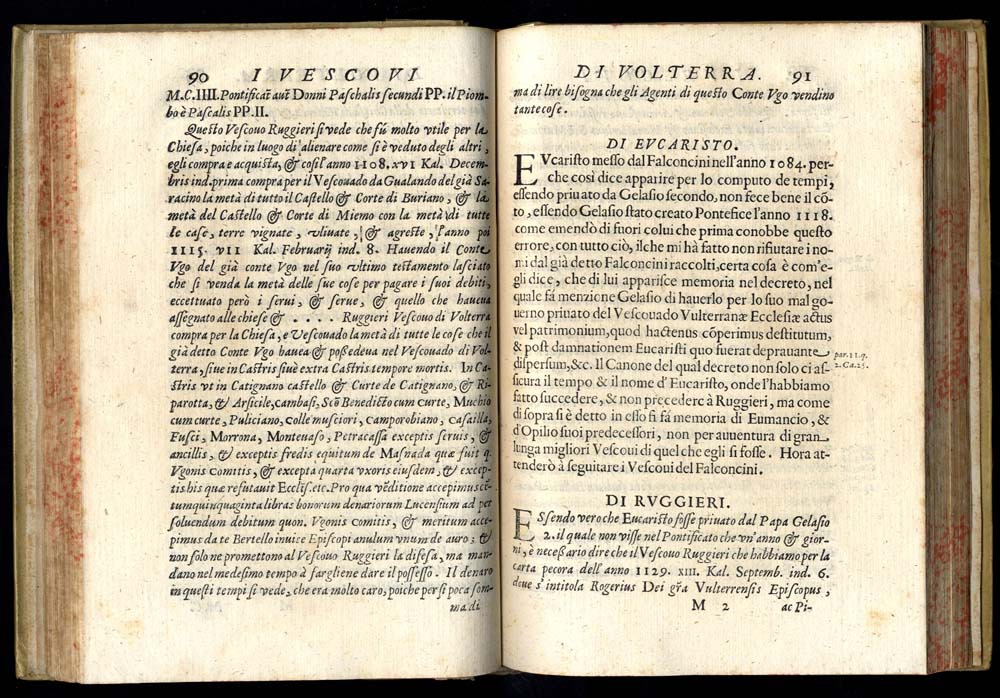 90 I VESCOVI
M.C.IIII. Pontificat̃ aut̃ Donni Paschalis secundi PP. il Piom-
bo è Pascalis PP. II.
Questo Vescouo Ruggieri si vede che fú molto vtile per la
Chiesa, poiche in luogo d'alienare come si è veduto degli altri,
egli compra e acquista, & cosi l'anno 1108. XVI Kal. Decem-
bris ind. prima compra per il Vescouado da Gualando del già Sa-
racino la metà di tutto il Castello & Corte di Buriano, & la
metà del Castello & Corte di Miemo con la metà di tutte
le case, terre vignate, vliuate, & agreste, l'anno poi
1115. VII Kal. Februarij ind. 8. Hauendo il Conte
Vgo del già conte Vgo nel suo vltimo testamento lasciato
che si venda la metà delle sue cose per pagare i suoi debiti,
eccettuato però i serui, & serue, & quello che haueua
assegnato alle chiese & . . . . Ruggieri Vescouo di Volterra
compra per la Chiesa, e Vescouado la metà di tutte le cose che il
già detto Conte Vgo hauea & possedeua nel Vescouado di Vol-
terra, siue in Castris siue extra Castris tempore mortis. In Ca-
stris vt in Catignano castello & Curte de Catignano, & Ri-
parotta, & Arsicile, cambasi, Scõ Benedicto cum curte, Muchio
cum curte, Puliciano, colle musciori, camporobiano, casailla,
Fusci, Morrona, Monteuaso, Petracassa exceptis seruis, &
ancillis, & exceptis fredis equitum de Masnada quæ fuit q.
Vgonis Comitis, & excepta quarta vxoris eiusdem, & excep-
tis his quæ refutauit Ecclis. etc. Pro qua vẽditione accepimus cẽ-
tumquinquaginta libras bonorum denariorum Lucensium ad per
soluendum debitum quon. Vgonis comitis, & meritum acce-
pimus da te Bertello in uice Episcopi anulum vnum de auro; &
non solo ne promettono al Vescouo Ruggieri la difesa, ma man-
dano nel medesimo tempo à fargliene dare il possesso. Il denaro
in questi tempi si vede, che era molto caro, poiche per si poca som-
ma di
DI VOLTERRA. 91
ma di lire bisogna che gli Agenti di questo Conte Vgo vendino
tante cose.
DI EVCARISTO.
EVcaristo messo dal Falconcini nell'anno 1084. per-
che così dice apparire per lo computo de tempi,
essendo priuato da Gelasio secondo, non fece bene il cõ-
to, essendo Gelasio stato creato Pontefice l'anno 1118.
come emendò di fuori colui che prima conobbe questo
errore, con tutto ciò, ilche mi hà fatto non rifiutare i no-
mi dal già detto Falconcini raccolti, certa cosa è com'e-
gli dice, che di lui apparisce memoria nel decreto, nel
quale fà menzione Gelasio di hauerlo per lo suo mal go-
uerno priuato del Vescouado Vulterranæ Ecclesiæ actus
vel patrimonium, quod hactenus cõperimus destitutum,
& post damnationem Eucaristi quo fuerat deprauante
dispersum, &c. Il Canone del qual decreto non solo ci as-
sicura il tempo & il nome d'Eucaristo, onde l'habbiamo
fatto succedere, & non precedere à Ruggieri, ma come
di sopra si è detto in esso si fà memoria di Eumancio, &
d'Opilio suoi predecessori, non per auuentura di gran
lunga migliori Vescoui di quel che egli si fosse. Hora at-
tenderò à seguitare i Vescoui del Falconcini.
par. 11. q.
2. Ca. 25.
DI RVGGIERI.
ESsendo vero che Eucaristo fosse priuato dal Papa Gelasio
2. il quale non visse nel Pontificato che vn'anno & gior-
ni, è necessario dire che il Vescouo Ruggieri che habbiamo per la
carta pecora dell'anno 1129. XIII. Kal. Septemb. ind. 6.
doue s'intitola Rogerius Dei gr̃a Vulterrensis Episcopus,
M 2 ac Pi-